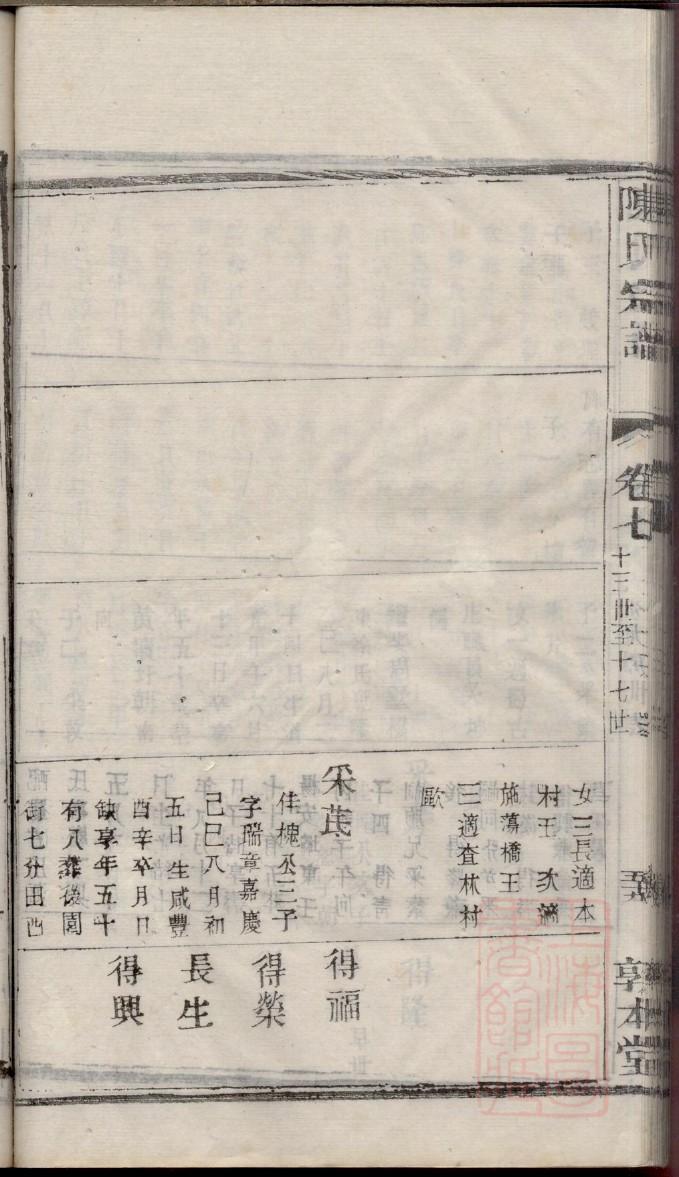 陳氏宗譜
卷七
十三世至十七世
享本堂
女三長適本
村王 次適
施蕩橋王
三適査林村
歐
采芪
佳槐公三子
字瑞章嘉慶
己巳八月初
五日生咸豐
酉辛卒月日
缺享年五十
有八葬後園
衖七分田酉
得福
得榮
長生
得興
上海圖書館藏